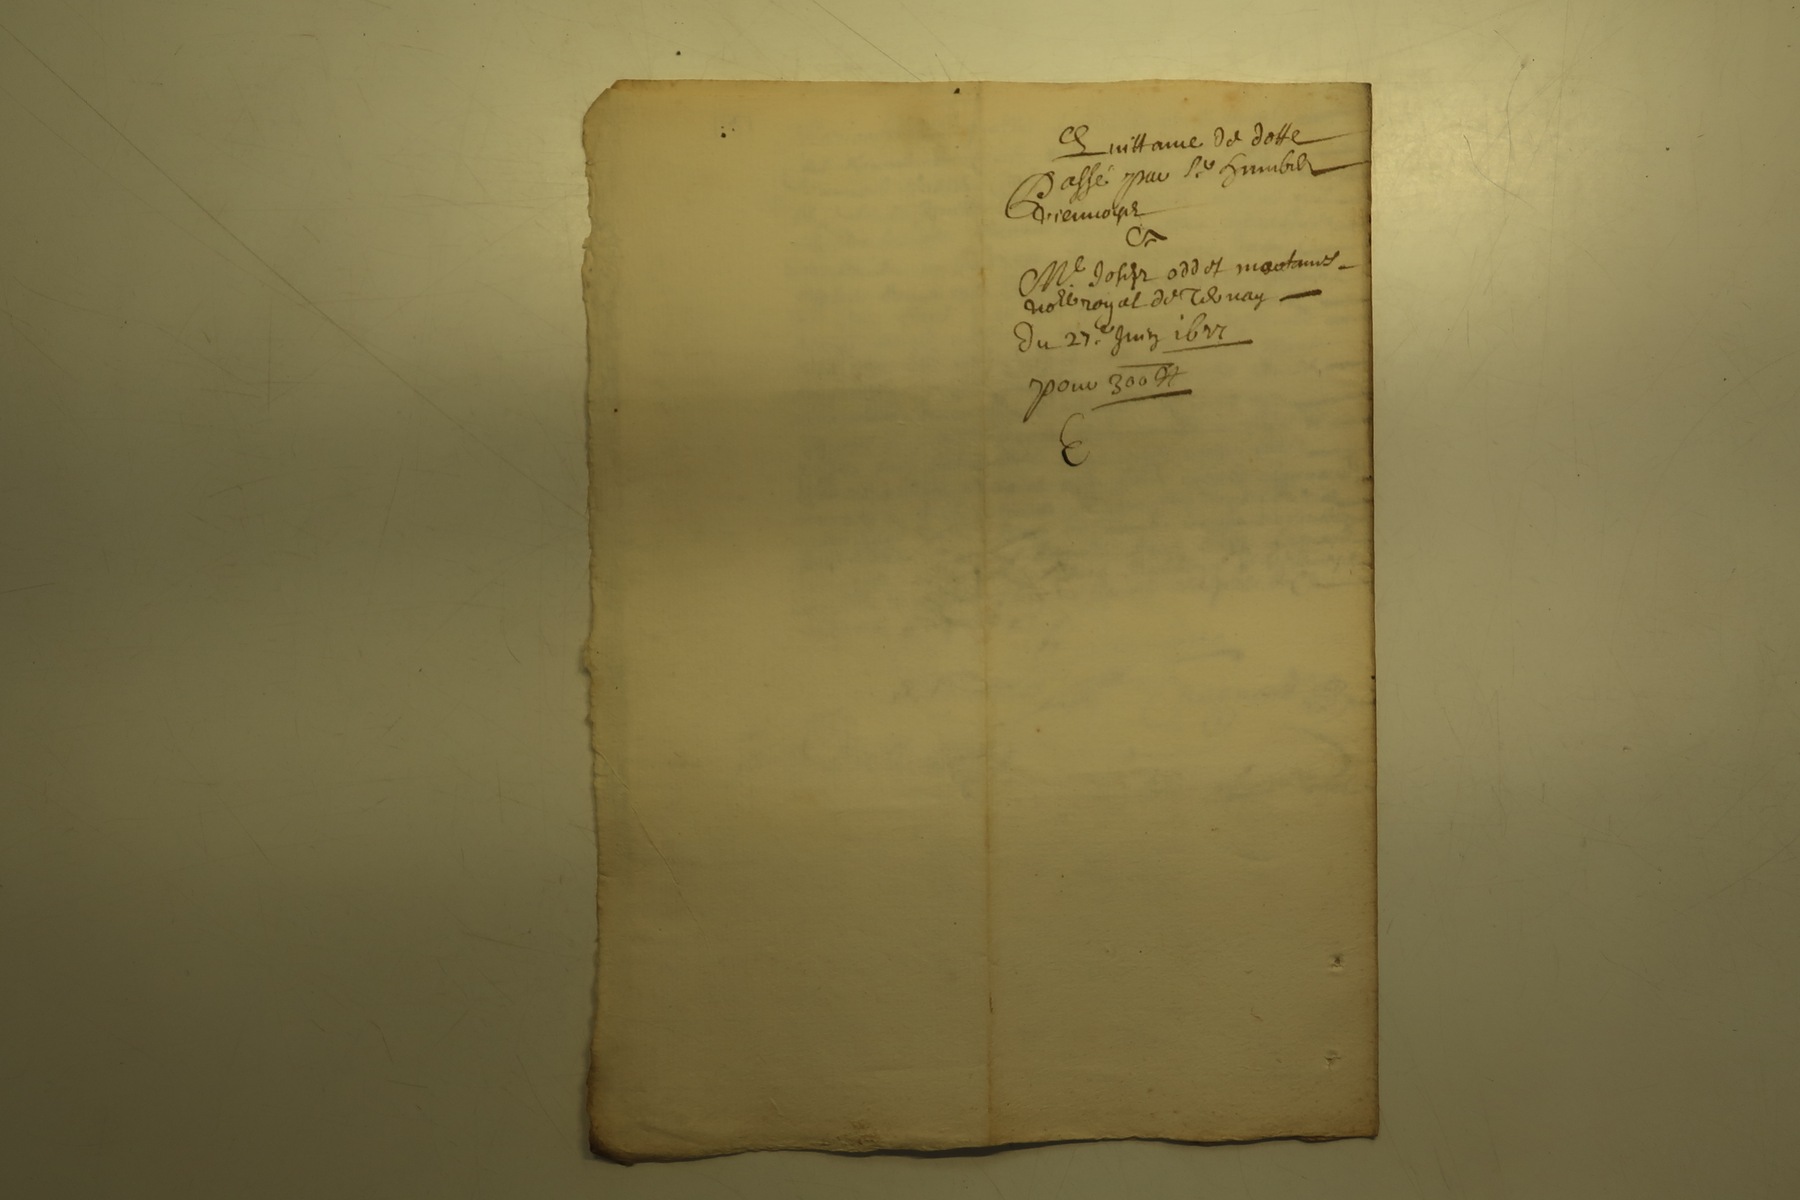 Quittance de dotte
Passé par Sr humber
viennoys
A
Me Joseph oddet
nore royal de Ternay
Du 27e Juin 1677
pour 300 ₶
E